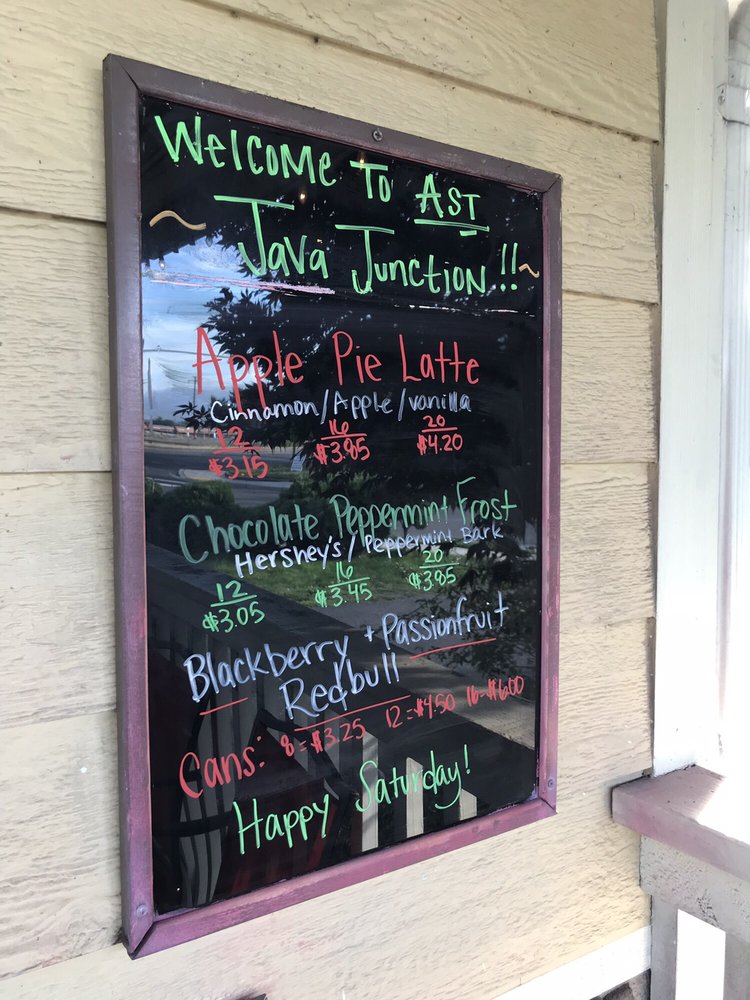 Welcome To Ast
~ Java Junction!! ~
Apple Pie Latte
Cinnamon/Apple/vanilla
12 16 20
$3.15 $3.85 $4.20
Chocolate Peppermint Frost
Hershey's/Peppermint Bark
12 16 20
$3.05 $3.45 $3.85
Blackberry + Passionfruit
Redbull
Cans: 8=$3.25 12=$4.50 16=$6.00
Happy Saturday!